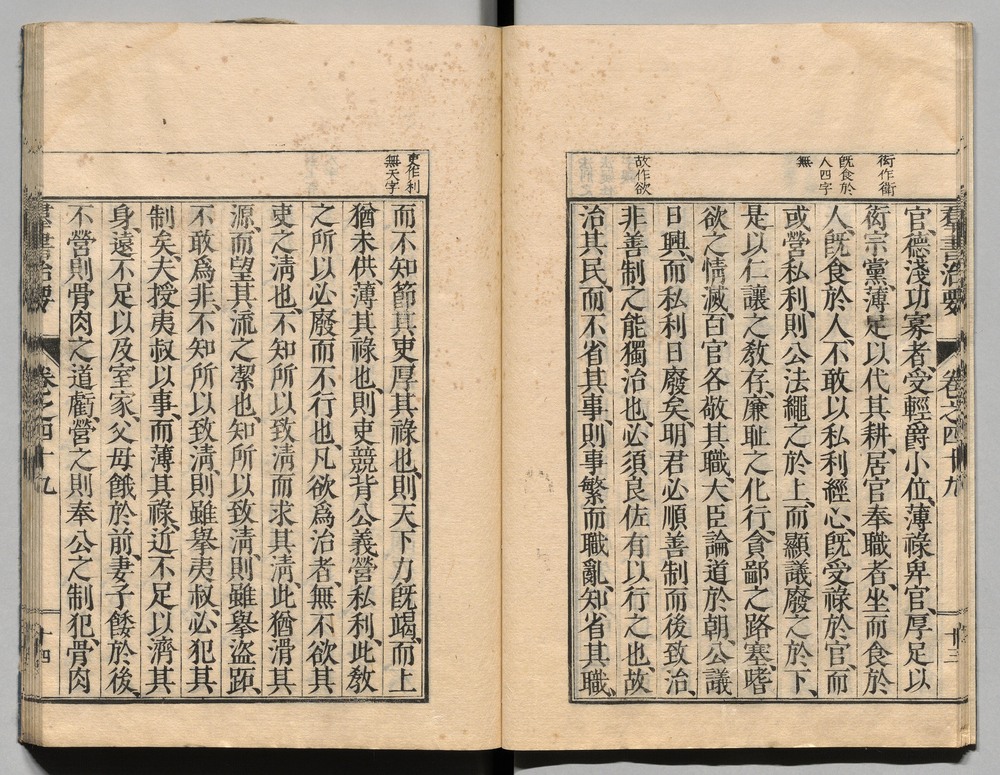 羣書治要 卷之四十九 十三
衒作衛
旣食於
人四字
無
故作欲
官、德淺功寡者、受輕爵小位、薄祿卑官、厚足以
衒宗黨、薄足以代其耕、居官奉職者、坐而食於
人、旣食於人、不敢以私利經心、旣受祿於官、而
或營私利、則公法繩之於上、而顯議廢之於下、
是以仁讓之敎存、廉耻之化行、貪鄙之路塞、嗜
欲之情滅、百官各敬其職、大臣論道於朝、公議
日興、而私利日廢矣、明君必順善制而後致治、
非善制之能獨治也、必須良佐有以行之也、故
治其民、而不省其事、則事繁而職亂、知省其職、
吏作利
無天字
而不知節其吏厚其祿也、則天下力旣竭、而上
猶未供、薄其祿也、則吏競背公義、營私利、此敎
之所以必廢而不行也、凡欲爲治者、無不欲其
吏之淸也、不知所以致淸而求其淸、此猶滑其
源、而望其流之潔也、知所以致淸、則雖舉盜跖、
不敢爲非、不知所以致淸、則雖舉夷叔、必犯其
制矣、夫授夷叔以事、而薄其祿、近不足以濟其
身、遠不足以及室家、父母餓於前、妻子餧於後、
不營則骨肉之道虧、營之則奉公之制犯、骨肉
羣書治要 卷之四十九 十四